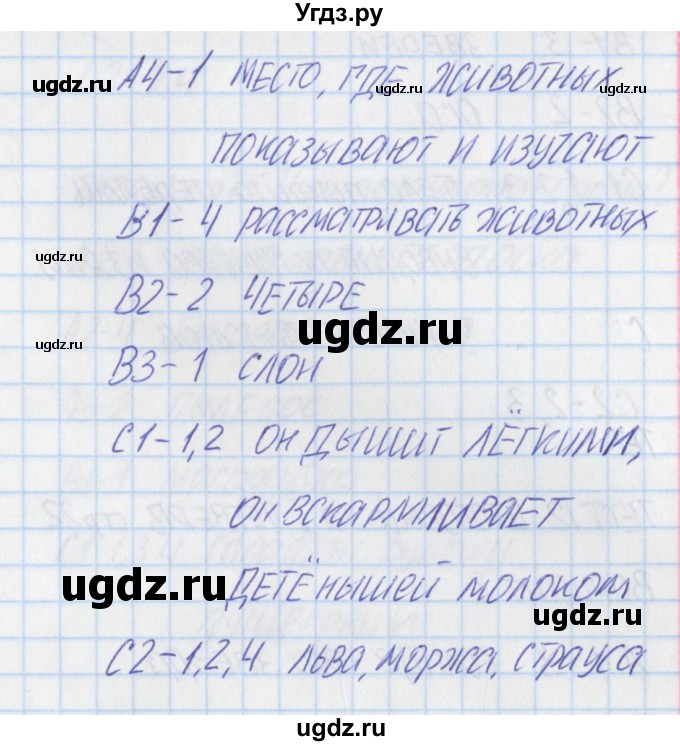 Угдз.ру
А4-1 МЕСТО, ГДЕ ЖИВОТНЫХ
ПОКАЗЫВАЮТ И ИЗУЧАЮТ
В1-4 РАССМАТРИВАТЬ ЖИВОТНЫХ
В2-2 ЧЕТЫРЕ
В3-1 СЛОН
С1-1,2 ОН ДЫШИТ ЛЁГКИМИ,
ОН ВСКАРМЛИВАЕТ
ДЕТЁНЫШЕЙ МОЛОКОМ
С2-1,2,4 ЛЬВА, МОРЖА, СТРАУСА
ugdz.ru
ugdz.ru
ugdz.ru
ugdz.ru
ugdz.ru
ugdz.ru
ugdz.ru
ugdz.ru
ugdz.ru
ugdz.ru